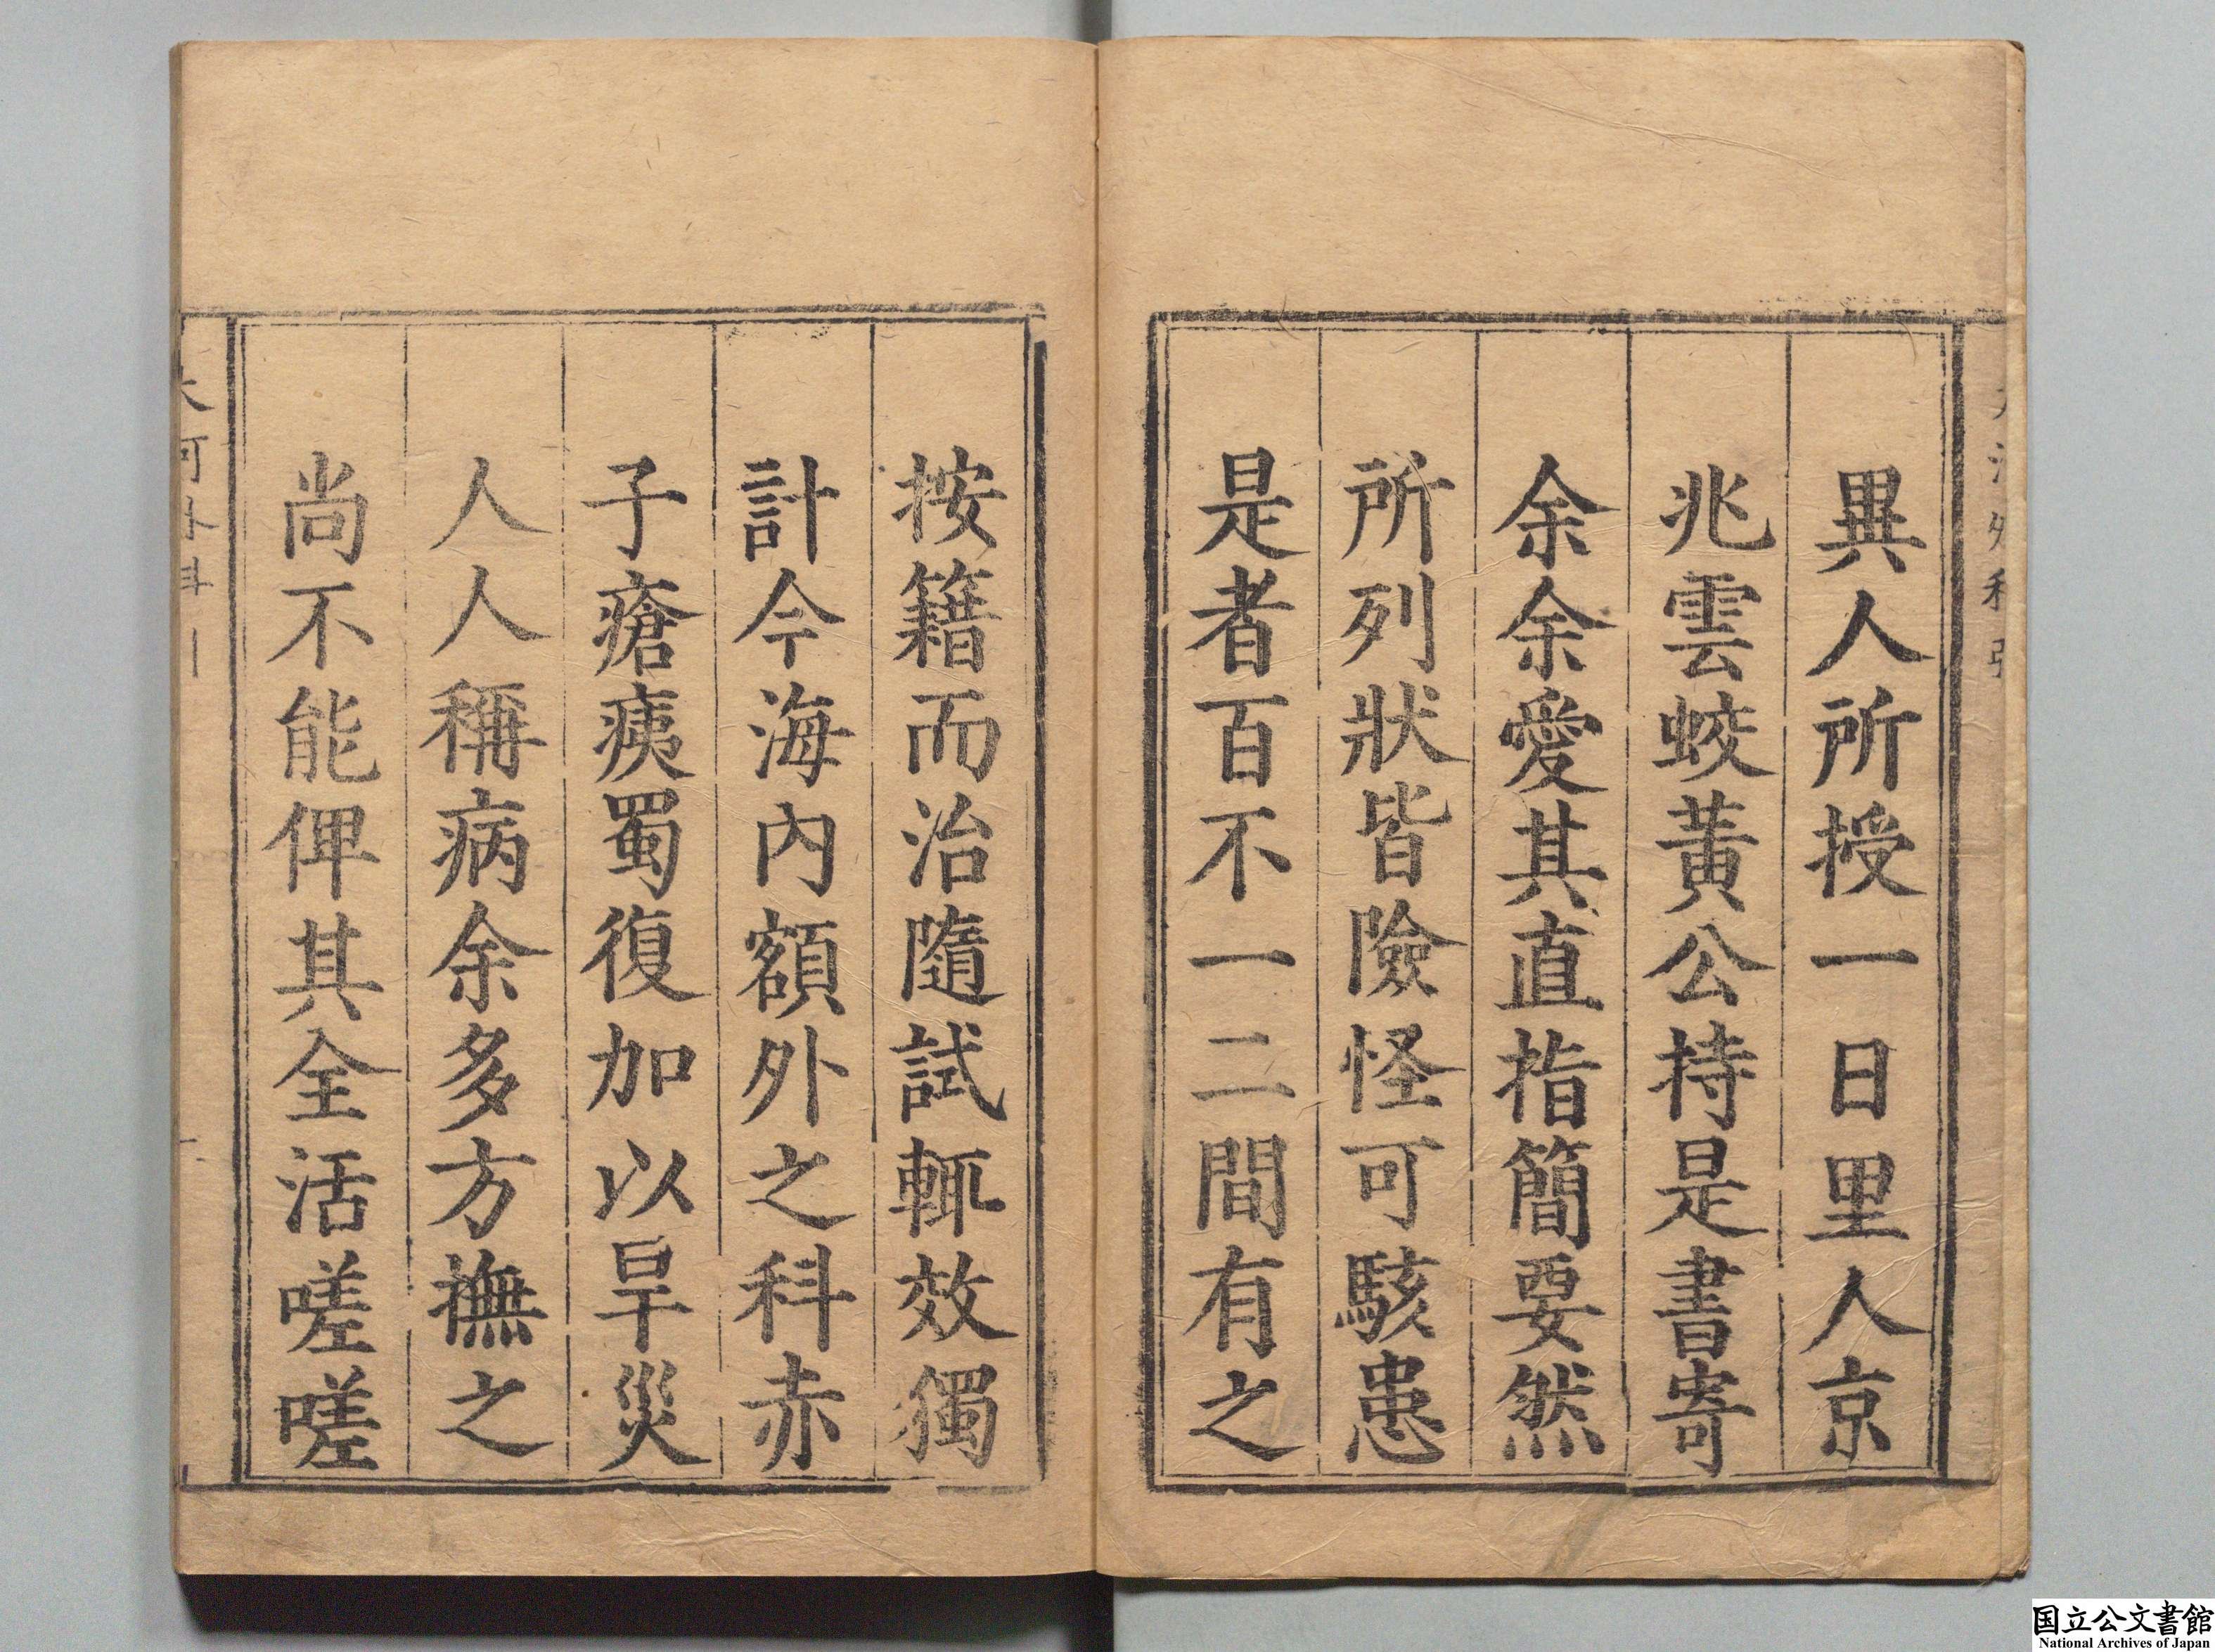 異人所授一日里人京
兆雲蛟黃公持是書寄
余余愛其直指簡要然
所列狀皆險怪可駭患
是者百不一二間有之
按籍而治隨試輒效獨
計今海內額外之科赤
子瘡痍蜀復加以旱災
人人稱病余多方撫之
尚不能俾其全活嗟嗟
国立公文書館
National Archives of Japan